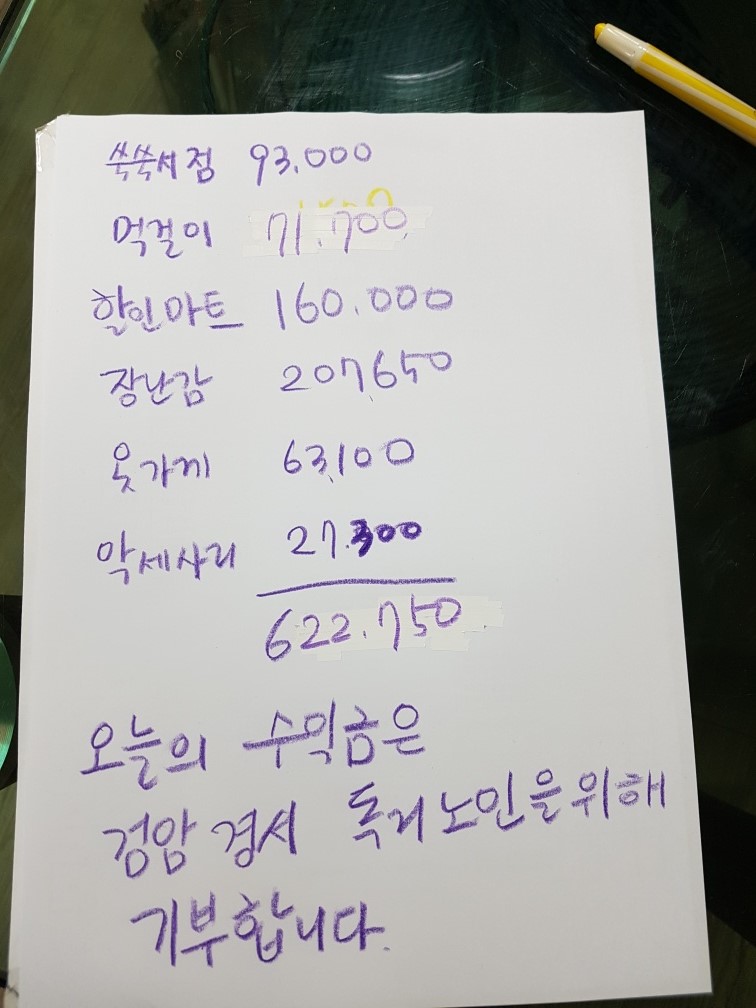 쑥쑥서점 93.000
먹걸이 71.700
할인마트 160.000
장난감 207,650
옷가께 63,100
악세사리 27.300
622.750
오늘의 수익금은
검암경서 독거노인을위해
기부합니다.